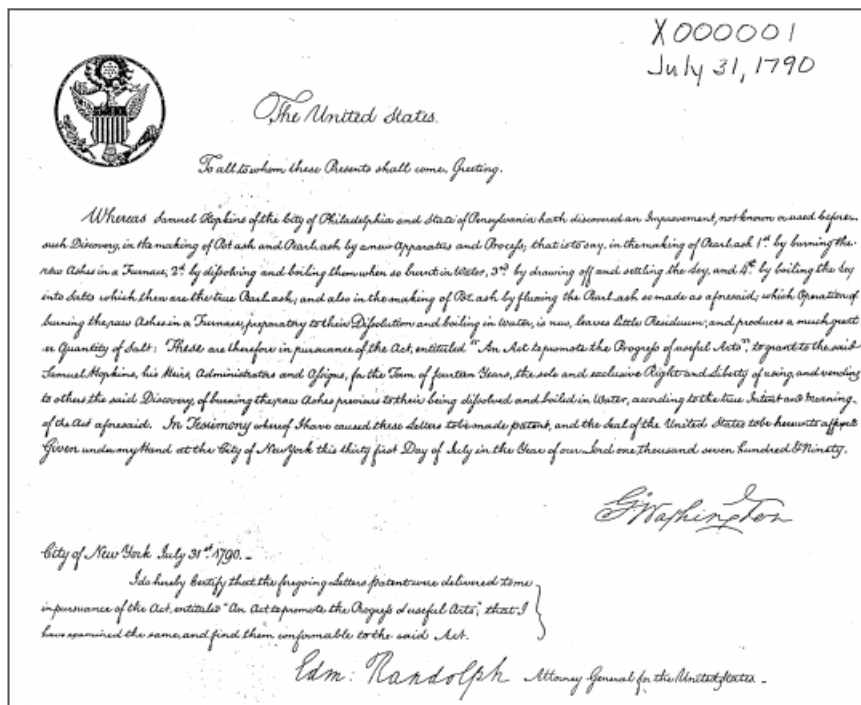 X000001
July 31, 1790
The United States.
To all to whom these Presents shall come, Greeting.
Whereas Samuel Hopkins of the City of Philadelphia and State of Pensylvania hath discovered an Improvement, not known or used before
such Discovery, in the making of Pot ash and Pearl ash by a new Apparatus and Process; that is to say, in the making of Pearl ash 1st by burning the
raw Ashes in a Furnace, 2d by dissolving and boiling them when so burnt in Water, 3rd by drawing off and settling the Ley, and 4th by boiling the Ley
into Salts which then are the true Pearl ash; and also in the making of Pot ash by fluxing the Pearl ash so made as aforesaid; which Operation of
burning the raw Ashes in a Furnace, preparatory to their Dissolution and boiling in Water, is new, leaves little Residuum; and produces a much great
er Quantity of Salt: These are therefore in pursuance of the Act, entituled "An Act to promote the Progress of useful Arts", to grant to the said
Samuel Hopkins, his Heirs, Administrators and Assigns, for the Term of fourteen Years, the sole and exclusive Right and Liberty of using, and vending
to others the said Discovery, of burning the raw Ashes previous to their being dissolved and boiled in Water, according to the true Intent and Meaning
of the Act aforesaid. In Testimony whereof I have caused these Letters to be made patent, and the Seal of the United States to be hereunto affixed
Given under my Hand at the City of New York this thirty first Day of July in the Year of our Lord one thousand seven hundred & Ninety.
G. Washington
City of New York July 31st 1790. -
I do hereby Certify that the foregoing Letters patent were delivered to me
in pursuance of the Act, entituled "An Act to promote the Progress of useful Arts"; that I
have examined the same, and find them conformable to the said Act.
Edm: Randolph Attorney General for the United States. -